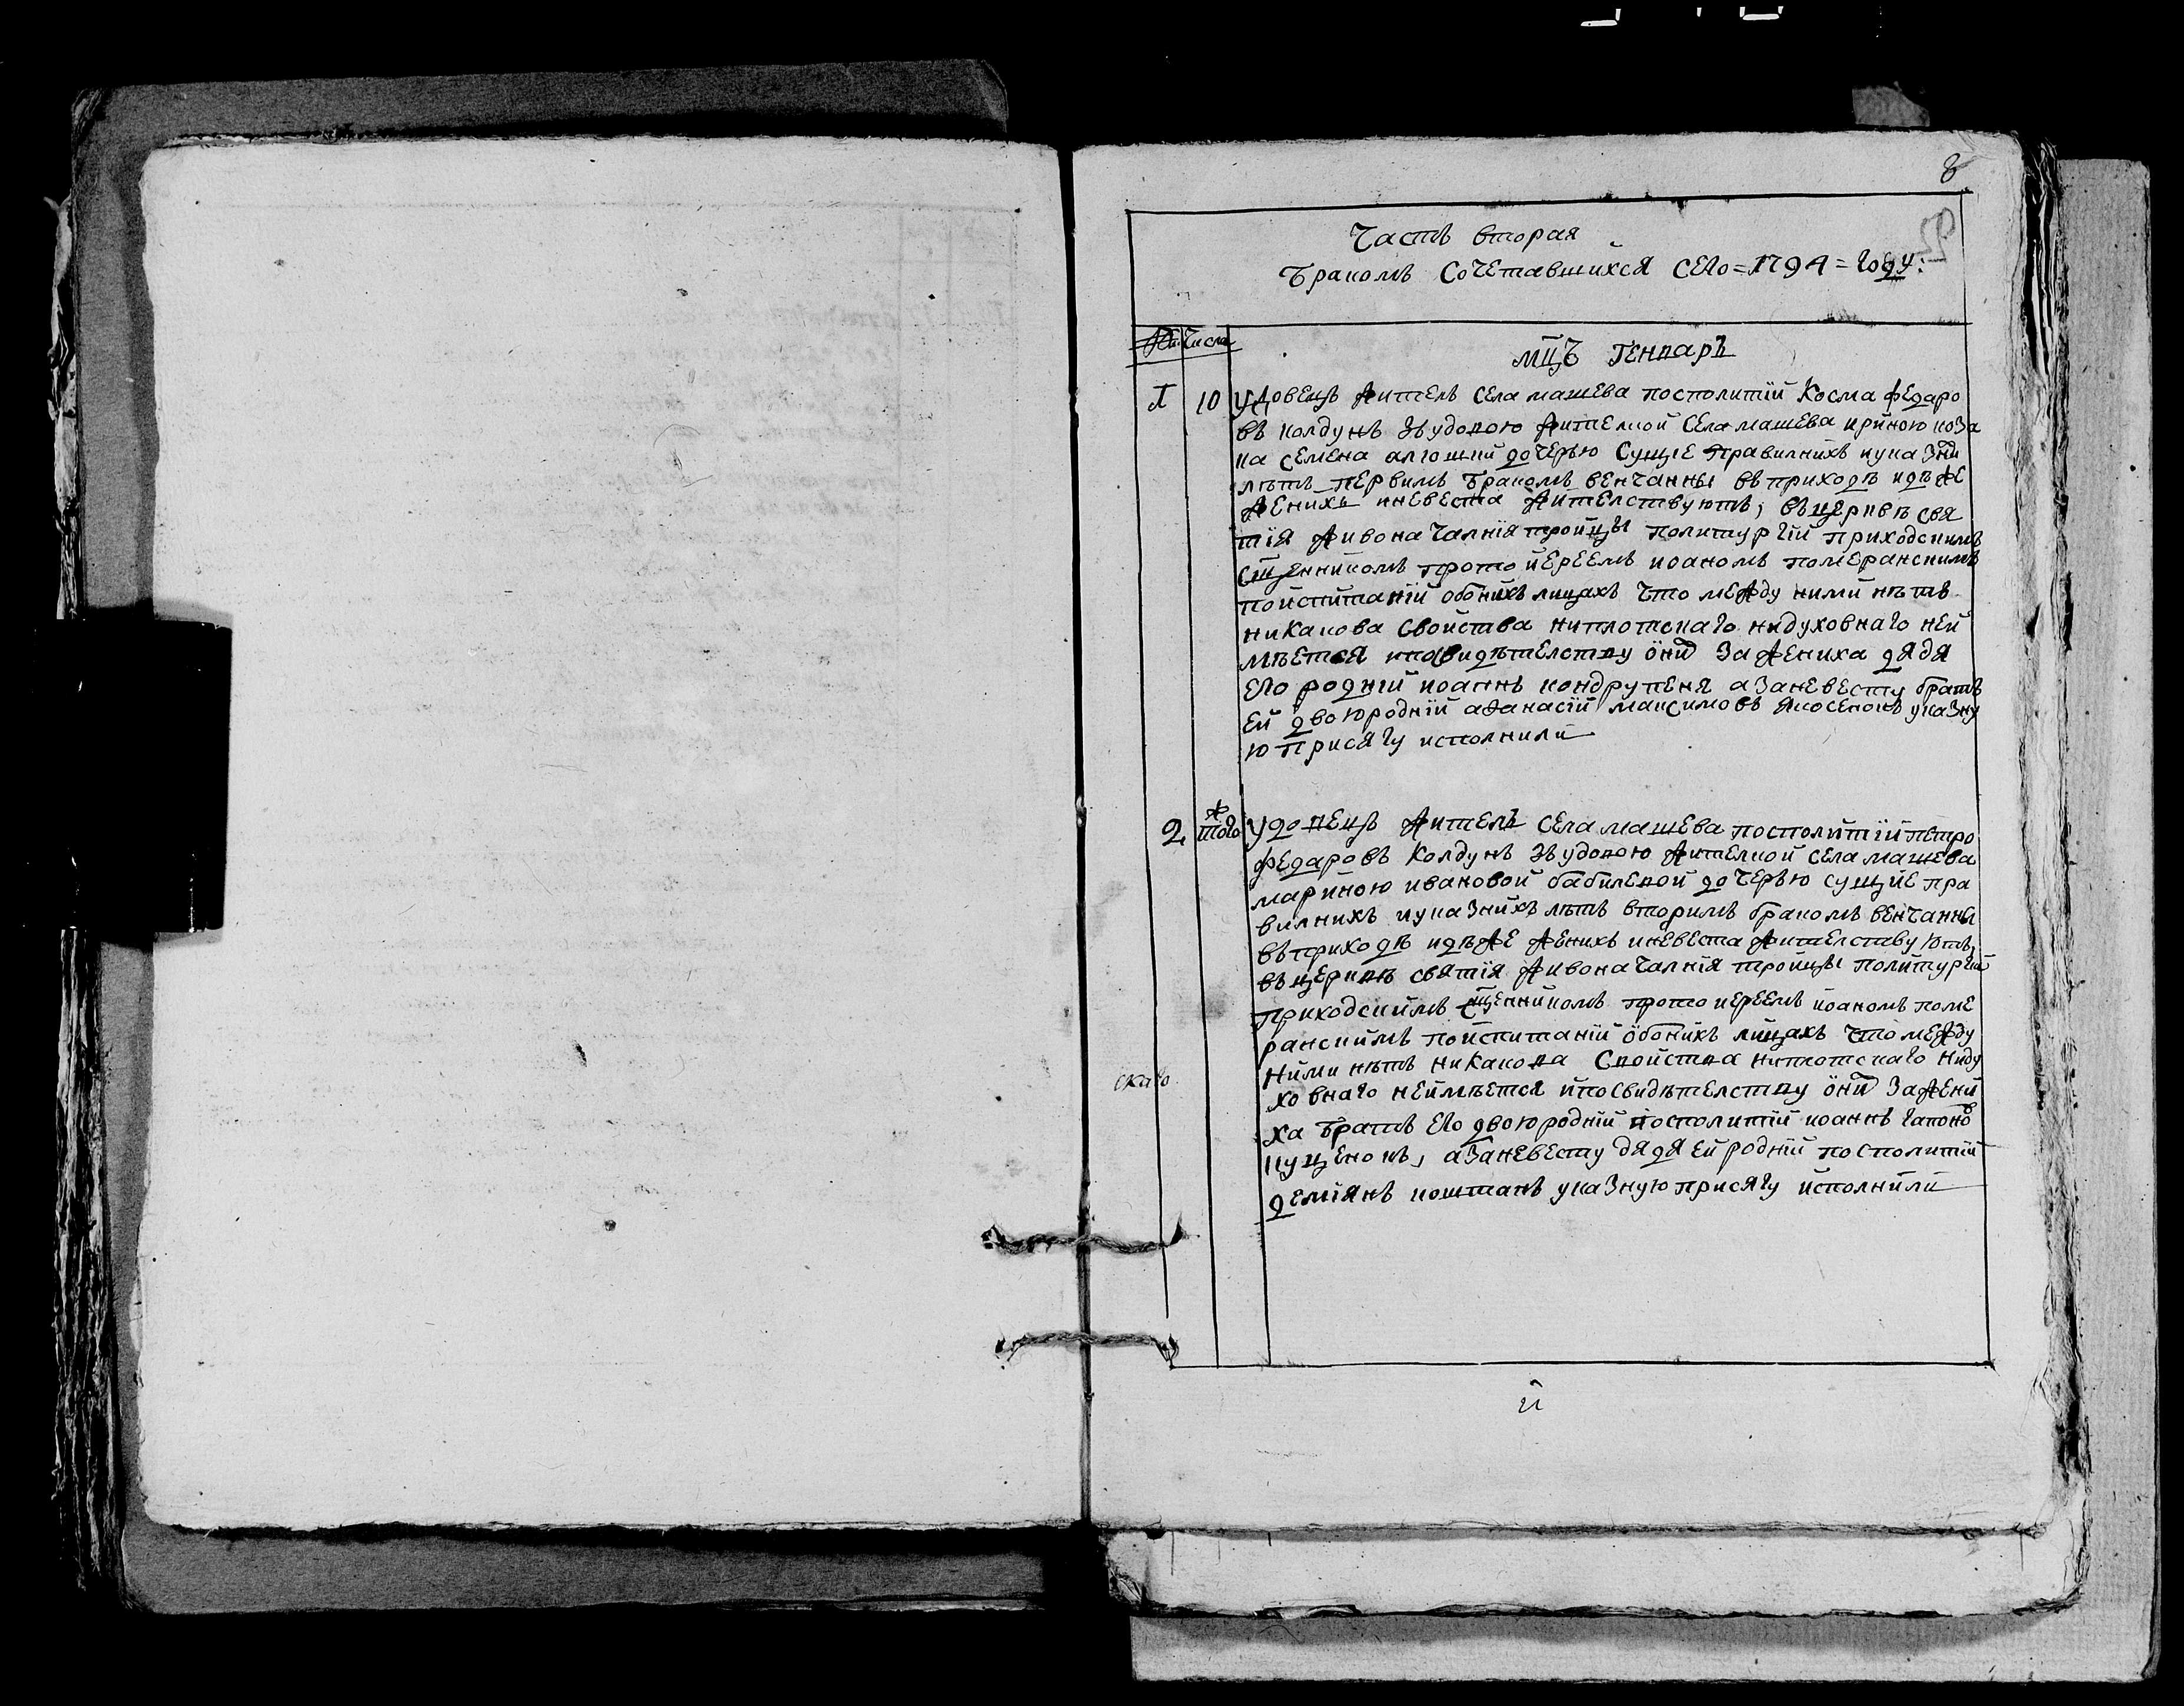 8
Часть вторая
Бракомъ сочетавшихся сего=1794=году:
Числа
мцъ Генварь
1 10 удовецъ житель села машева посполитій Косма Федоро
въ колдунъ зъ удовою жителкой села машева ириною коза
ка семена алгошии дочерью сущіе правилнихъ и указни
лѣтъ первимъ бракомъ венчанны въ приходѣ идѣже
женихъ и невеста жителствуютъ, въ церквѣ свя
тія живоначалнія тройцы политургій приходскимъ
сщенникомъ протоиереемъ иоаномъ померанскимъ
поиспитаній обоихъ лицахъ что между ними нѣтъ
никакова свойства ниплотскаго нидуховнаго неи
мѣется и посвидѣтелству они за жениха дядя
его родній иоаннъ кондрупеня а заневесту братъ
ей двоюродній афанасій максимовъ якосенокъ указну
ю присягу исполнили
2 того ж удовецъ житель села машева посполитій петро
федаровъ колдунъ зъ удовою жителкой села машева
мариною ивановой бабилевой дочерью сущіе пра
вилнихъ и указнихъ лѣтъ вторимъ бракомъ венчанны
въ приходѣ идѣже женихъ и невеста жителствуютъ,
въ церквѣ святія живоначалнія тройцы политургій
приходскимъ сщенникомъ протоиереемъ иоаномъ поме
ранскимъ поиспитаній обоихъ лицахъ что между
ними нѣтъ никакова свойства ниплотскаго ниду
ховнаго неимѣется и посвидѣтелству они за жени
ха братъ его двоюродній посполитій иоаннъ гапоно
куценокъ, а заневесту дядя ей родній посполитій
деміянъ коштанъ указную присягу исполнили
скаго
й